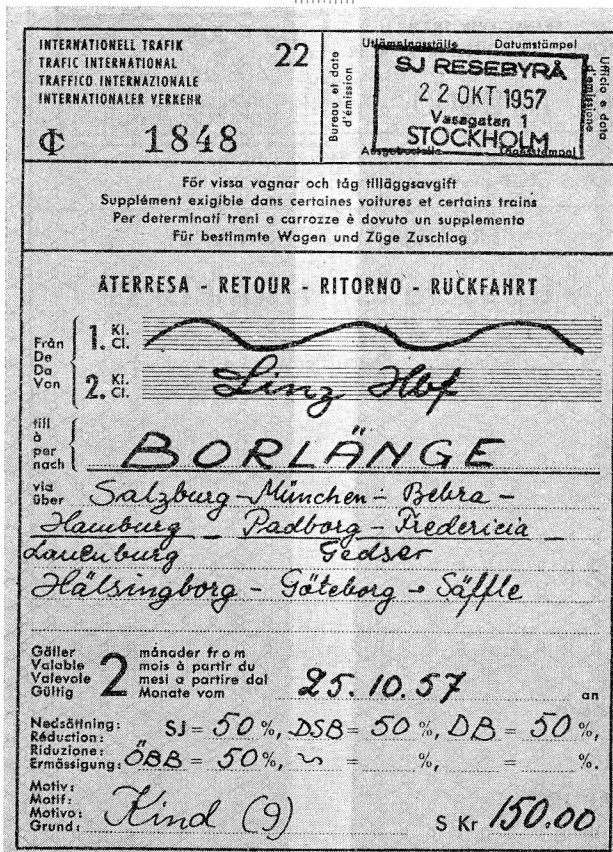 INTERNATIONELL TRAFIK
TRAFIC INTERNATIONAL
TRAFFICO INTERNAZIONALE
INTERNATIONALER VERKEHR
22
1848
Bureau et date
d'émission
Utlämningsställe Datumstämpel
SJ RESEBYRÅ
22 OKT 1957
Vasagatan 1
STOCKHOLM
Ausgabestelle Tagesstempel
Ufficio e data
d'emissione
För vissa vagnar och tåg tilläggsavgift
Supplément exigible dans certaines voitures et certains trains
Per determinati treni e carrozze è dovuto un supplemento
Für bestimmte Wagen und Züge Zuschlag
ÅTERRESA - RETOUR - RITORNO - RUCKFAHRT
Från
De
Da
Von
1. Kl.
Cl.
2. Kl.
Cl.
Linz Hbf
till
à
per
nach
BORLÄNGE
via
über
Salzburg - München - Bebra -
Hamburg - Padborg - Fredericia -
Lauenburg Gedser
Hälsingborg - Göteborg - Säffle
Gäller
Valable
Valevole
Gültig
2
månader from
mois à partir du
mesi a partire dal
Monate vom
25.10.57
an
Nedsättning:
Réduction:
Riduzione:
Ermässigung:
SJ = 50 %, DSB = 50 %, DB = 50 %,
ÖBB = 50 %, ~ = %, = %.
Motiv:
Motif:
Motivo:
Grund:
Kind (9)
S Kr 150.00